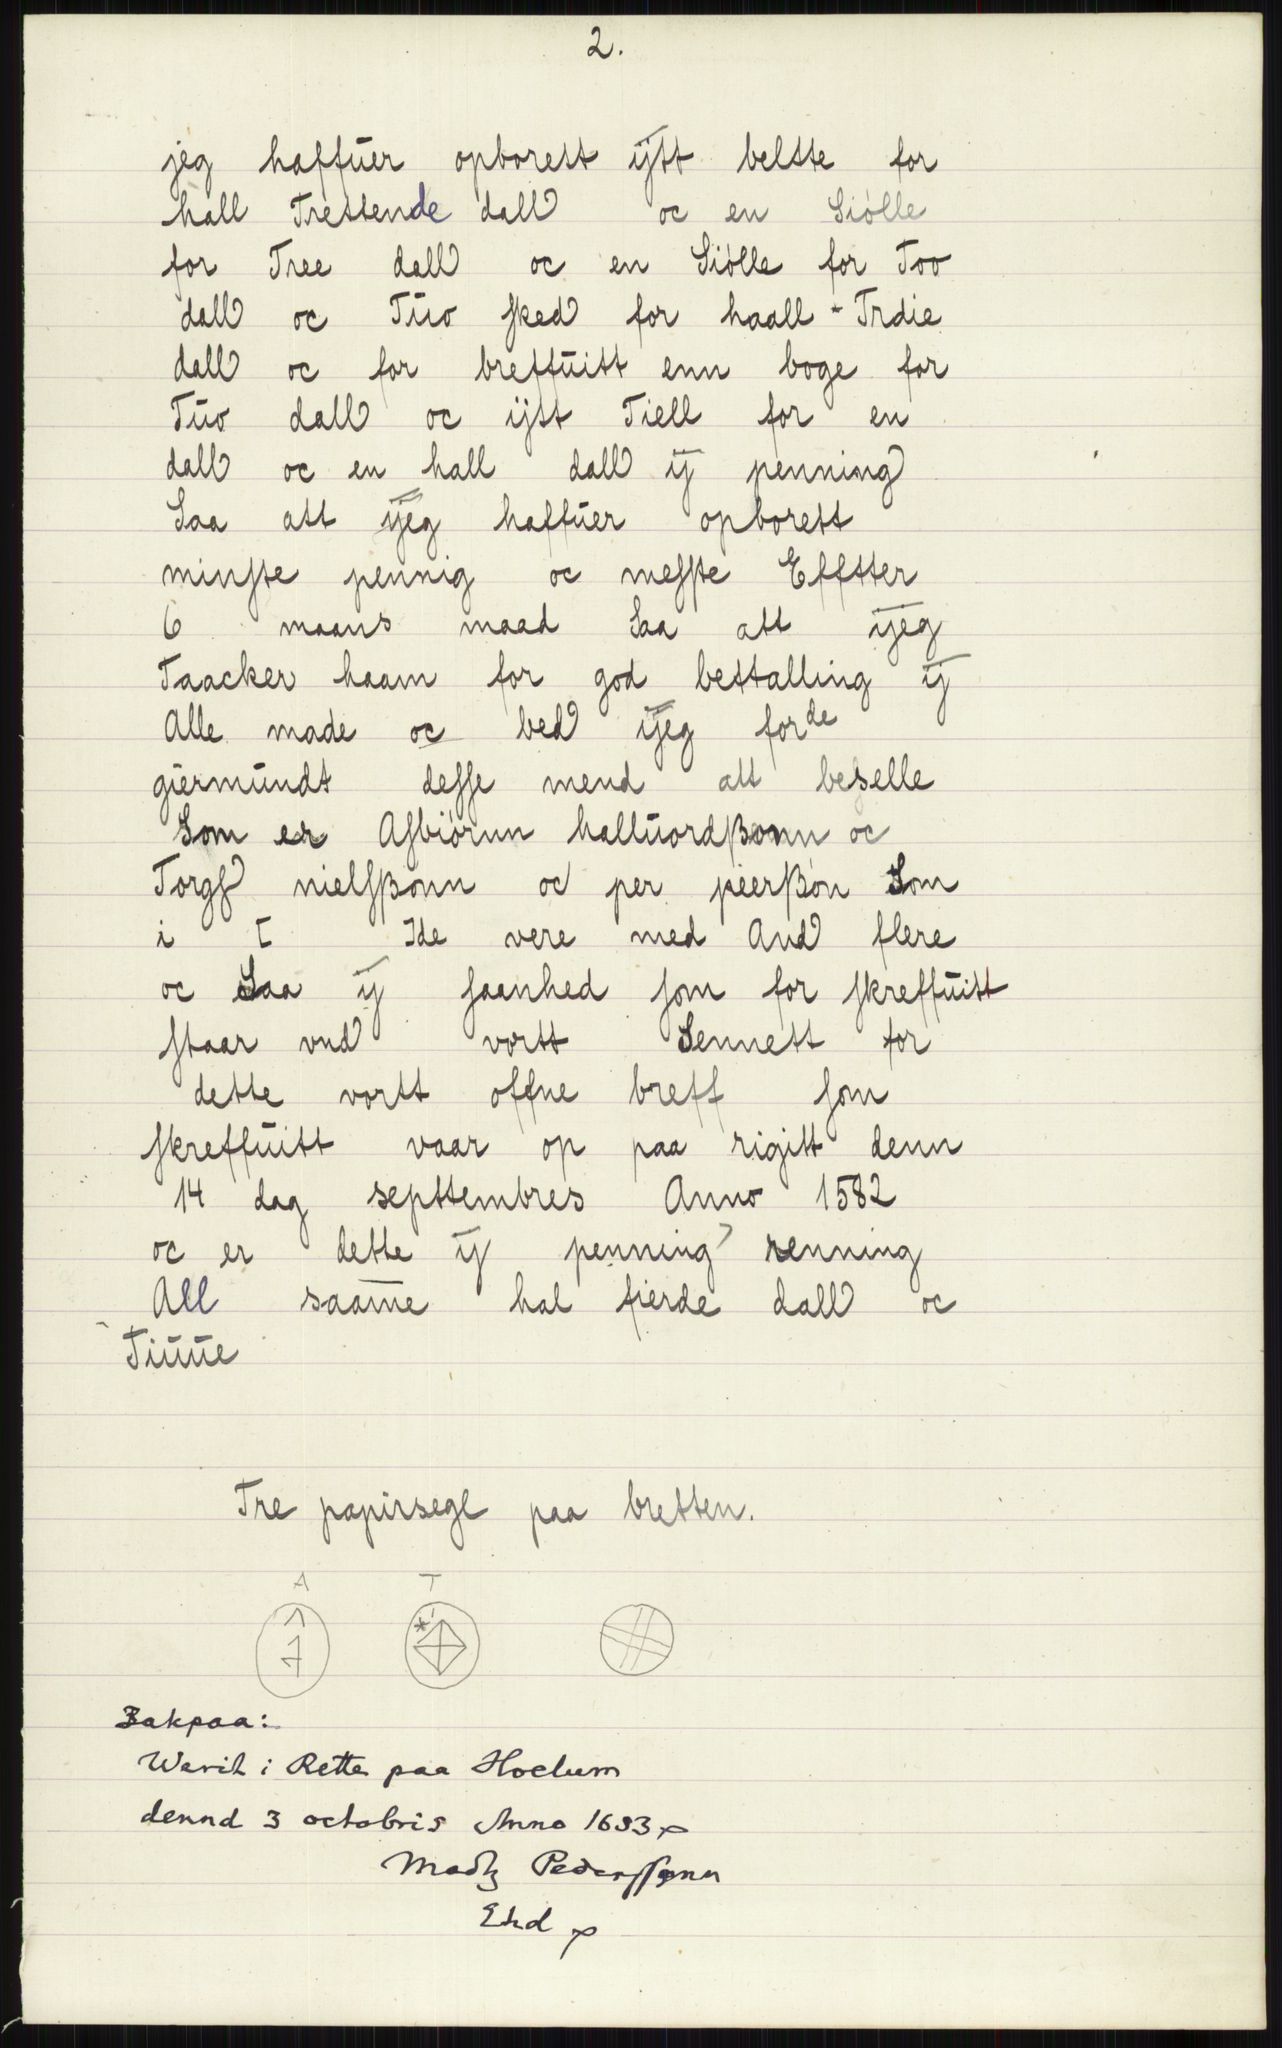 2.
jeg haffuer opborett ijtt beltte for
hall Trettende dall oc en Siölle
for Tree dall oc en Siölle for Too
dall oc Tuo sked for haall-Trdie
dall oc for breffuitt enn boge for
Tuo dall oc ijtt Tiell for en
dall oc en hall dall ij penning
Saa att ijeg haffuer opborett
minste pennig oc meste Effter
6 maans maad Saa att ijeg
Taacker haam for god bettalling ij
Alle made oc bed ijeg forde
giermundt desse mend att beselle
Som er Asbiörnn halluordßonn oc
Torgß nielsßonn oc per peerßon Som
i T Ide vere med And flere
oc Saa ij saanhed som for skreffuitt
staar vnd vortt Sennett for
dette vortt offne breff som
skreffuitt vaar op paa rigitt denn
14 dag septtembres Anno 1582
oc er dette ij penning renning
All saame hal fierde dall oc
Tiuue
Tre papirsegl paa bretten.
A T
Bakpaa:
Werit i Rette paa Hoelum
dennd 3 octobris Anno 1633
Madtz Pederssønn
Ehd